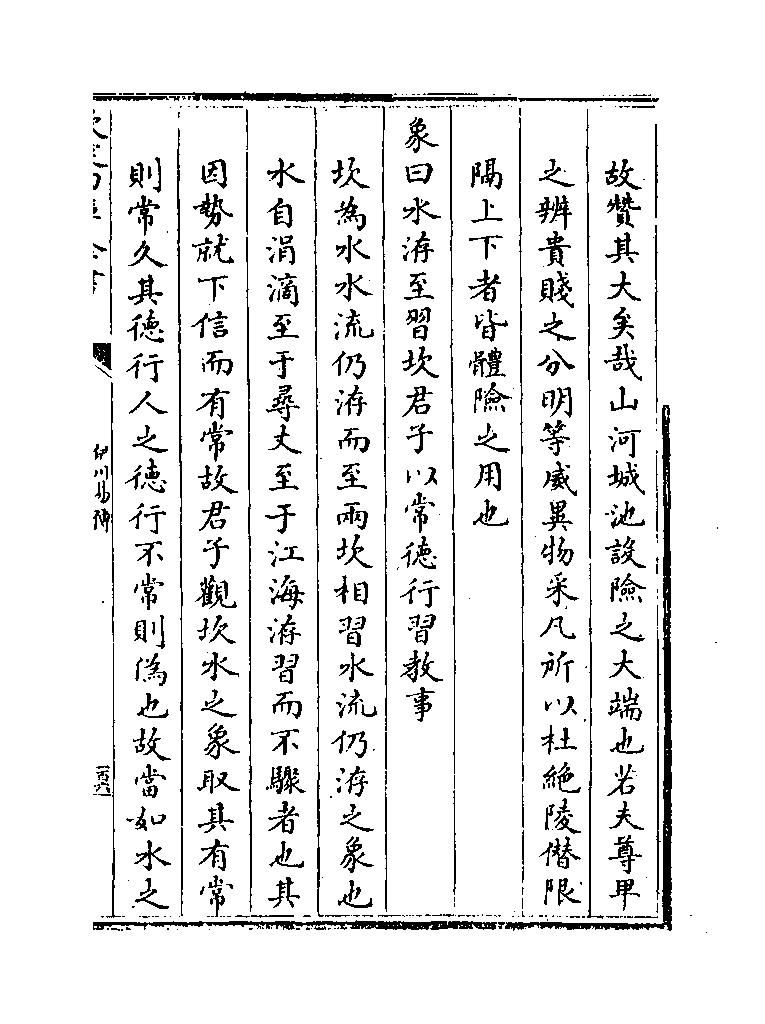 故贊其大矣哉山河城池設險之大端也若夫尊卑
之辨貴賤之分明等威異物采凡所以杜絶陵僣限
隔上下者皆體險之用也
象曰水洊至習坎君子以常徳行習教事
坎為水水流仍洊而至兩坎相習水流仍洊之象也
水自涓滴至于尋丈至于江海洊習而不驟者也其
因勢就下信而有常故君子觀坎水之象取其有常
則常久其徳行人之徳行不常則偽也故當如水之
伊川易傳